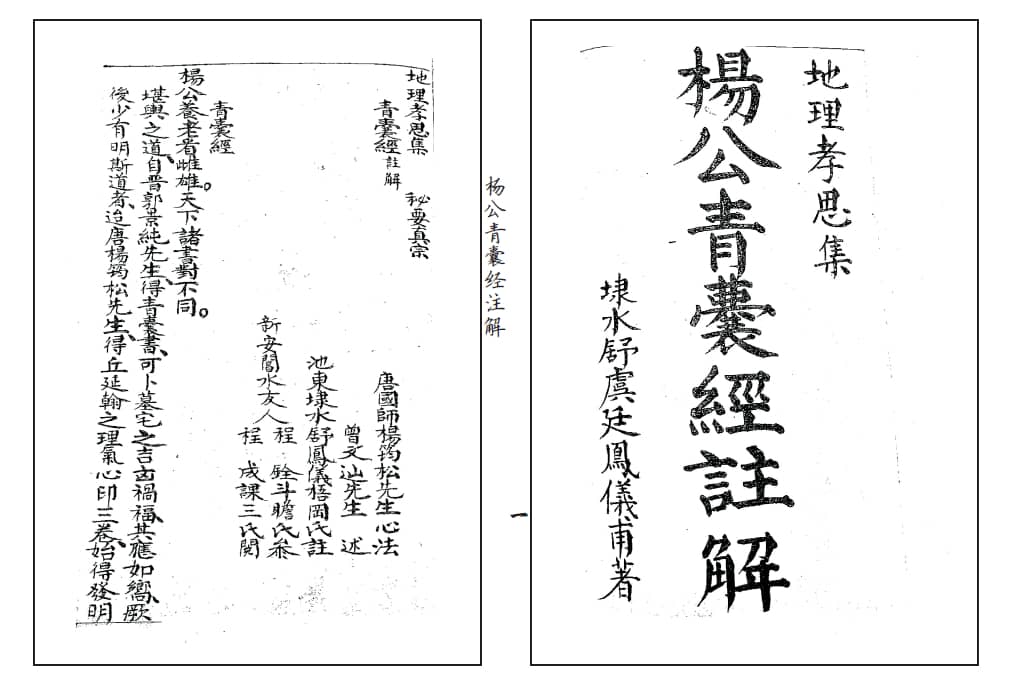 地理孝思集
楊公青囊經註解
埭水舒虞廷鳳儀甫著
杨公青囊经注解
一
地理孝思集 秘要真宗
青囊經註解
唐國師楊筠松先生心法
曾文辿先生 述
池東埭水舒鳳儀梧岡氏註
新安閶水友人程 銓斗瞻氏參
程 成課三氏閱
青囊經
楊公養老看雌雄。天下諸書對不同。
堪輿之道、自晋郭景純先生、得青囊書、可卜墓宅之吉凶禍福、其應如嚮、厥
後少有明斯道者、迨唐楊筠松先生、得丘延翰之理氣心印三卷、始得發明